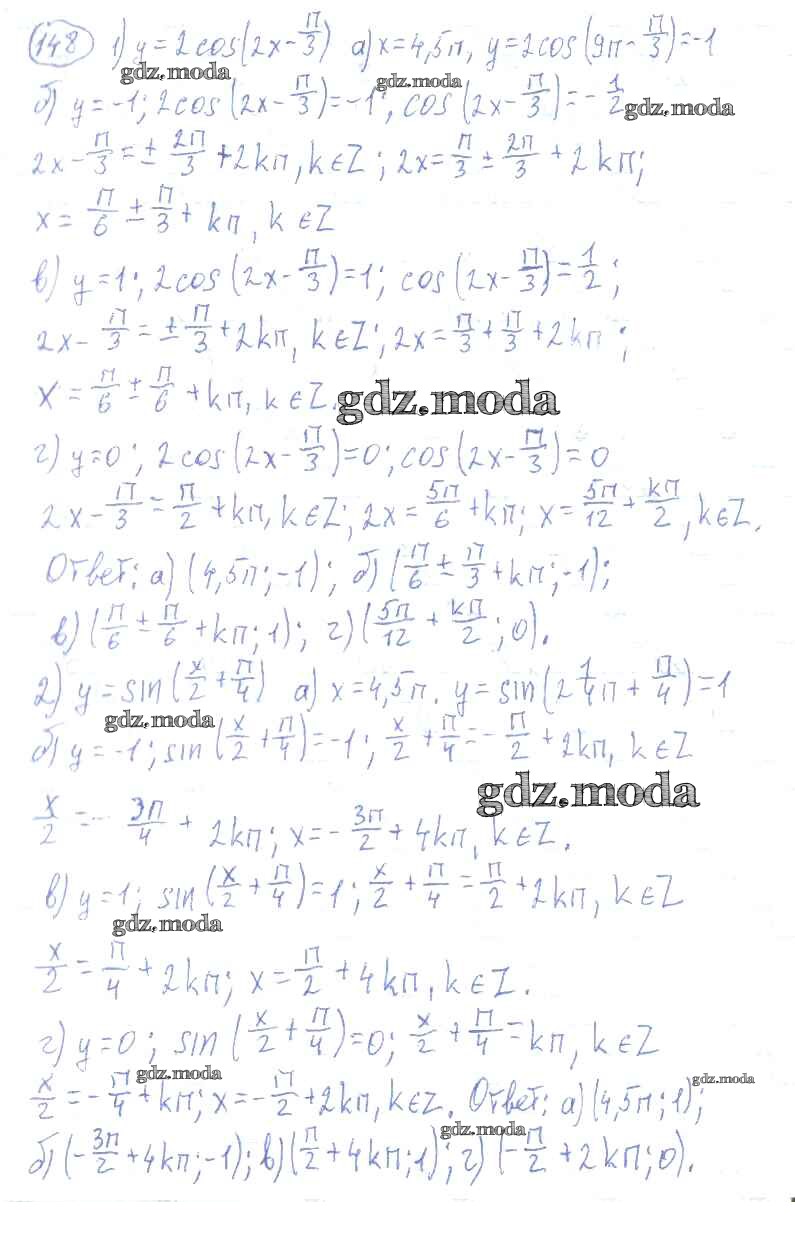 148 1) y=2cos(2x-п/3) а) x=4,5п, y=2cos(9п-п/3)=-1
gdz.moda gdz.moda
б) y=-1; 2cos(2x-п/3)=-1; cos(2x-п/3)=-1/2
gdz.moda
2x-п/3=±2п/3+2kп, k∈Z; 2x=п/3±2п/3+2kп;
x=п/6±п/3+kп, k∈Z
в) y=1; 2cos(2x-п/3)=1; cos(2x-п/3)=1/2;
2x-п/3=±п/3+2kп, k∈Z; 2x=п/3+п/3+2kп;
x=п/6±п/6+kп, k∈Z.
gdz.moda
г) y=0; 2cos(2x-п/3)=0; cos(2x-п/3)=0
2x-п/3=п/2+kп, k∈Z; 2x=5п/6+kп; x=5п/12+kп/2, k∈Z.
Ответ: а) (4,5п;-1); б) (п/6±п/3+kп;-1);
в) (п/6±п/6+kп;1); г) (5п/12+kп/2;0).
2) y=sin(x/2+п/4) а) x=4,5п. y=sin(2 1/4п+п/4)=1
gdz.moda
б) y=-1; sin(x/2+п/4)=-1; x/2+п/4=-п/2+2kп, k∈Z
gdz.moda
x/2=-3п/4+2kп; x=-3п/2+4kп, k∈Z.
в) y=1; sin(x/2+п/4)=1; x/2+п/4=п/2+2kп, k∈Z
gdz.moda
x/2=п/4+2kп; x=п/2+4kп, k∈Z.
г) y=0; sin(x/2+п/4)=0; x/2+п/4=kп, k∈Z
gdz.moda gdz.moda
x/2=-п/4+kп; x=-п/2+2kп, k∈Z. Ответ: а) (4,5п;1);
gdz.moda
б) (-3п/2+4kп;-1); в) (п/2+4kп;1); г) (-п/2+2kп;0).